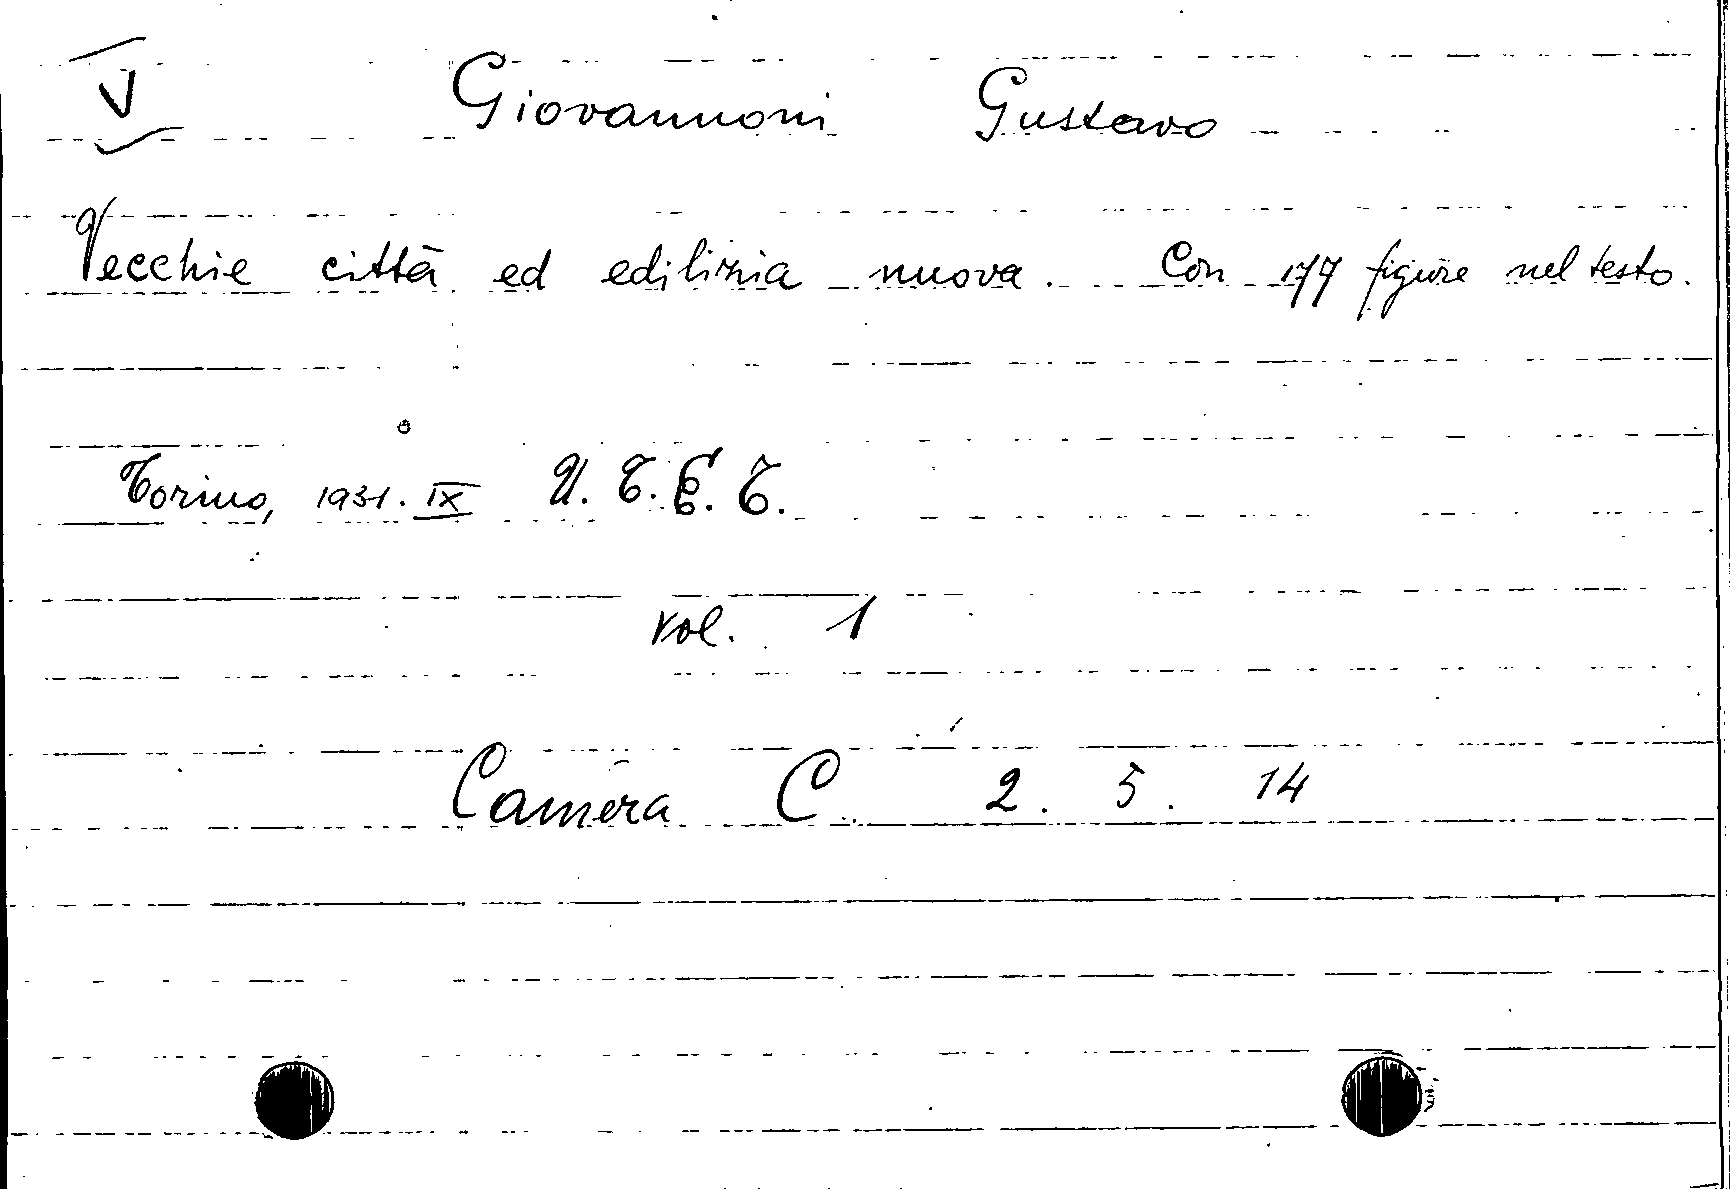 V Giovannoni Gustavo
Vecchie città ed edilizia nuova. Con 177 figure nel testo.
Torino, 1931. IX U. T. E. T.
vol. 1
Camera C. 2. 5. 14